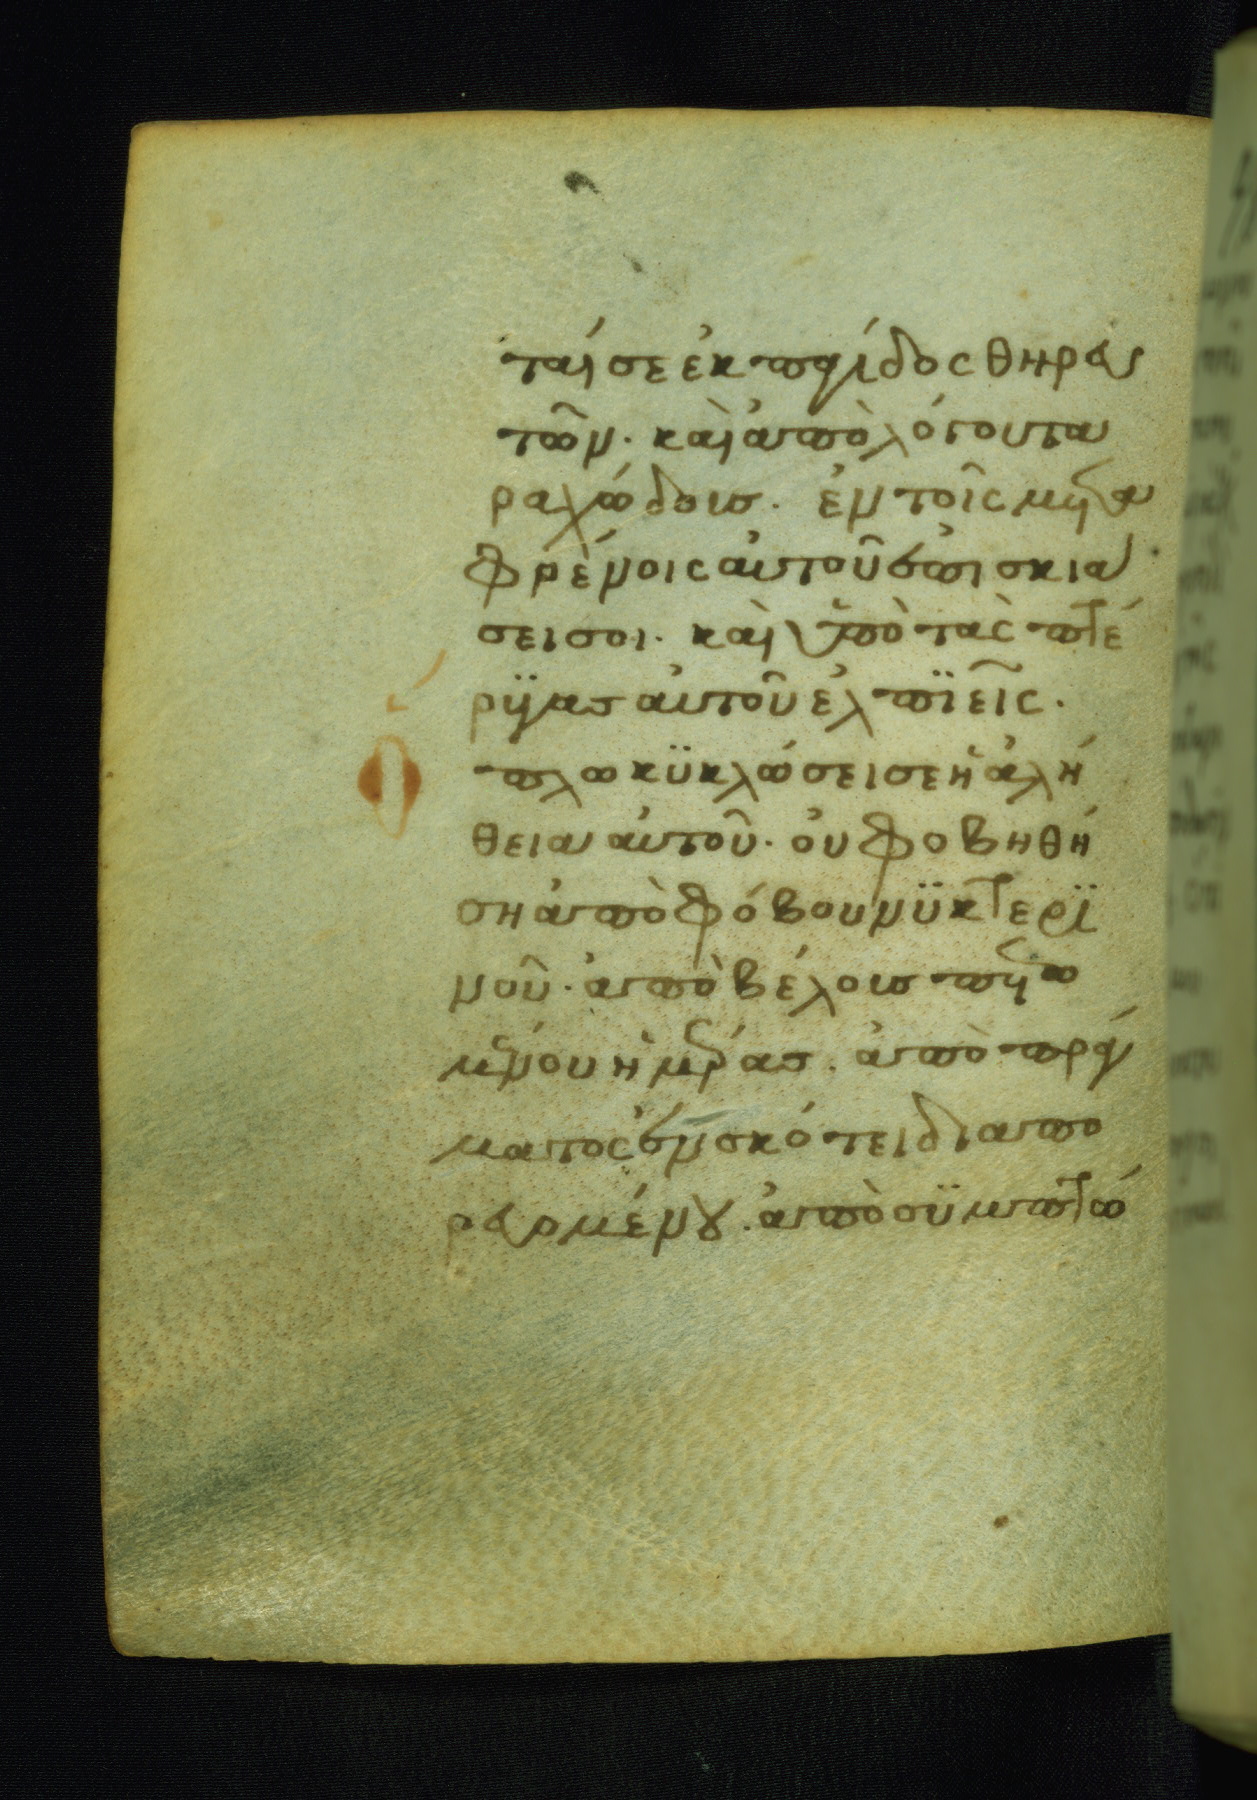 ταί σε ἐκ παγίδος θηρευ
τῶν· καὶ ἀπὸ λόγου τα
ραχώδους· ἐν τοῖς μετα
φρένοις αὐτοῦ ἐπισκιά
σει σοι· καὶ ὑπὸ τὰς πτέ
ρϋγας αὐτοῦ ἐλπϊεῖς·
Ὅ πλω κϋκλώσει σε ἡ ἀλή
θεια αὐτοῦ· οὐ φοβηθή
ση ἀπὸ φόβου νϋκτερϊ
νοῦ· ἀπὸ βέλους πετο
μένου ἡμέρας· ἀπὸ πράγ
ματος ἐν σκότει διαπο
ρευομένου· ἀπὸ σϋμπτώ